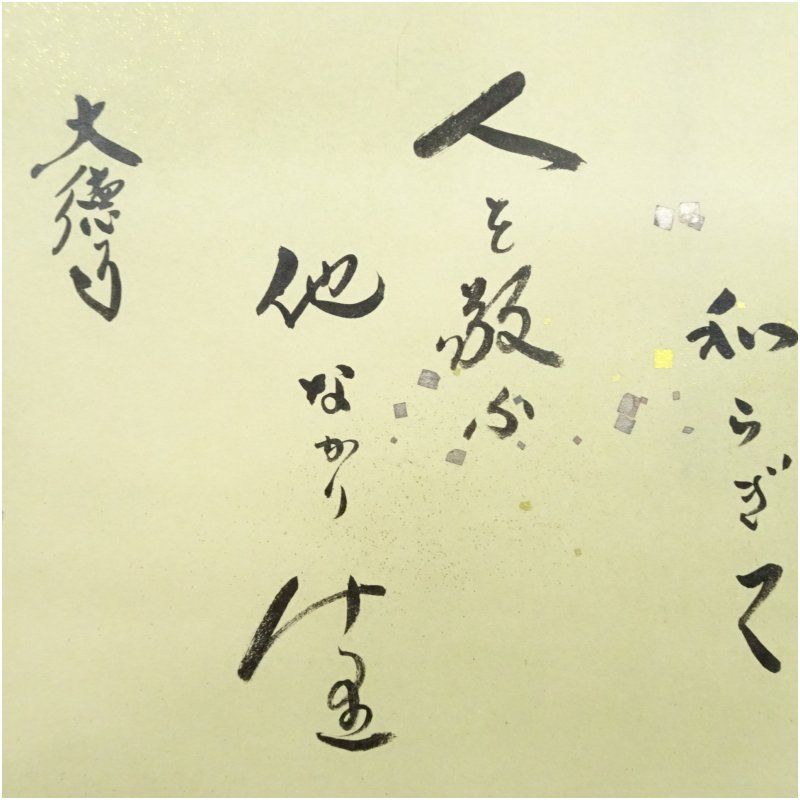 和らぎて
人を敬ふ
他なかりけ里
大徳寺